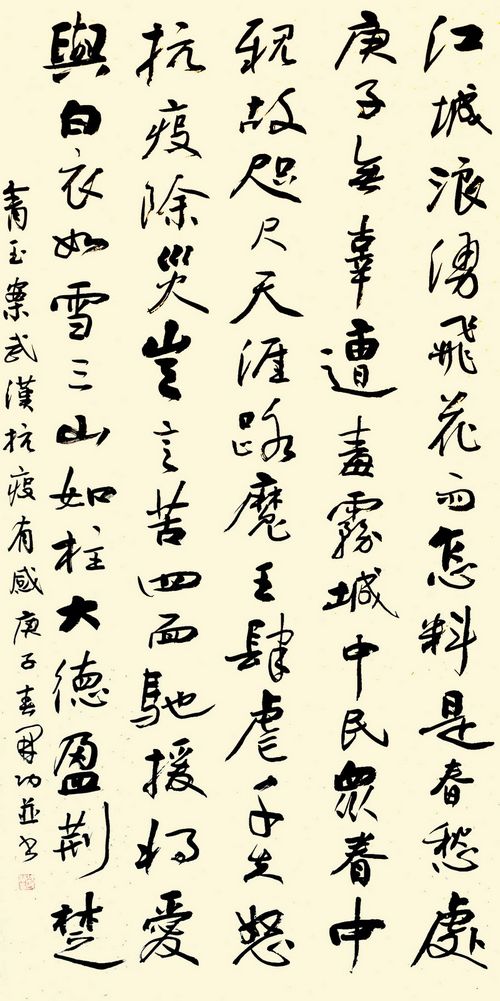 江城浪湧飛花雨怎料是春愁處
庚子無辜遭毒霧城中民眾眷中
親故咫尺天涯路魔王肆虐怒
抗疫除災豈言苦四面馳援將愛
與白衣如雪三山如柱大德盈荊楚
青玉案武漢抗疫有感庚子春並書